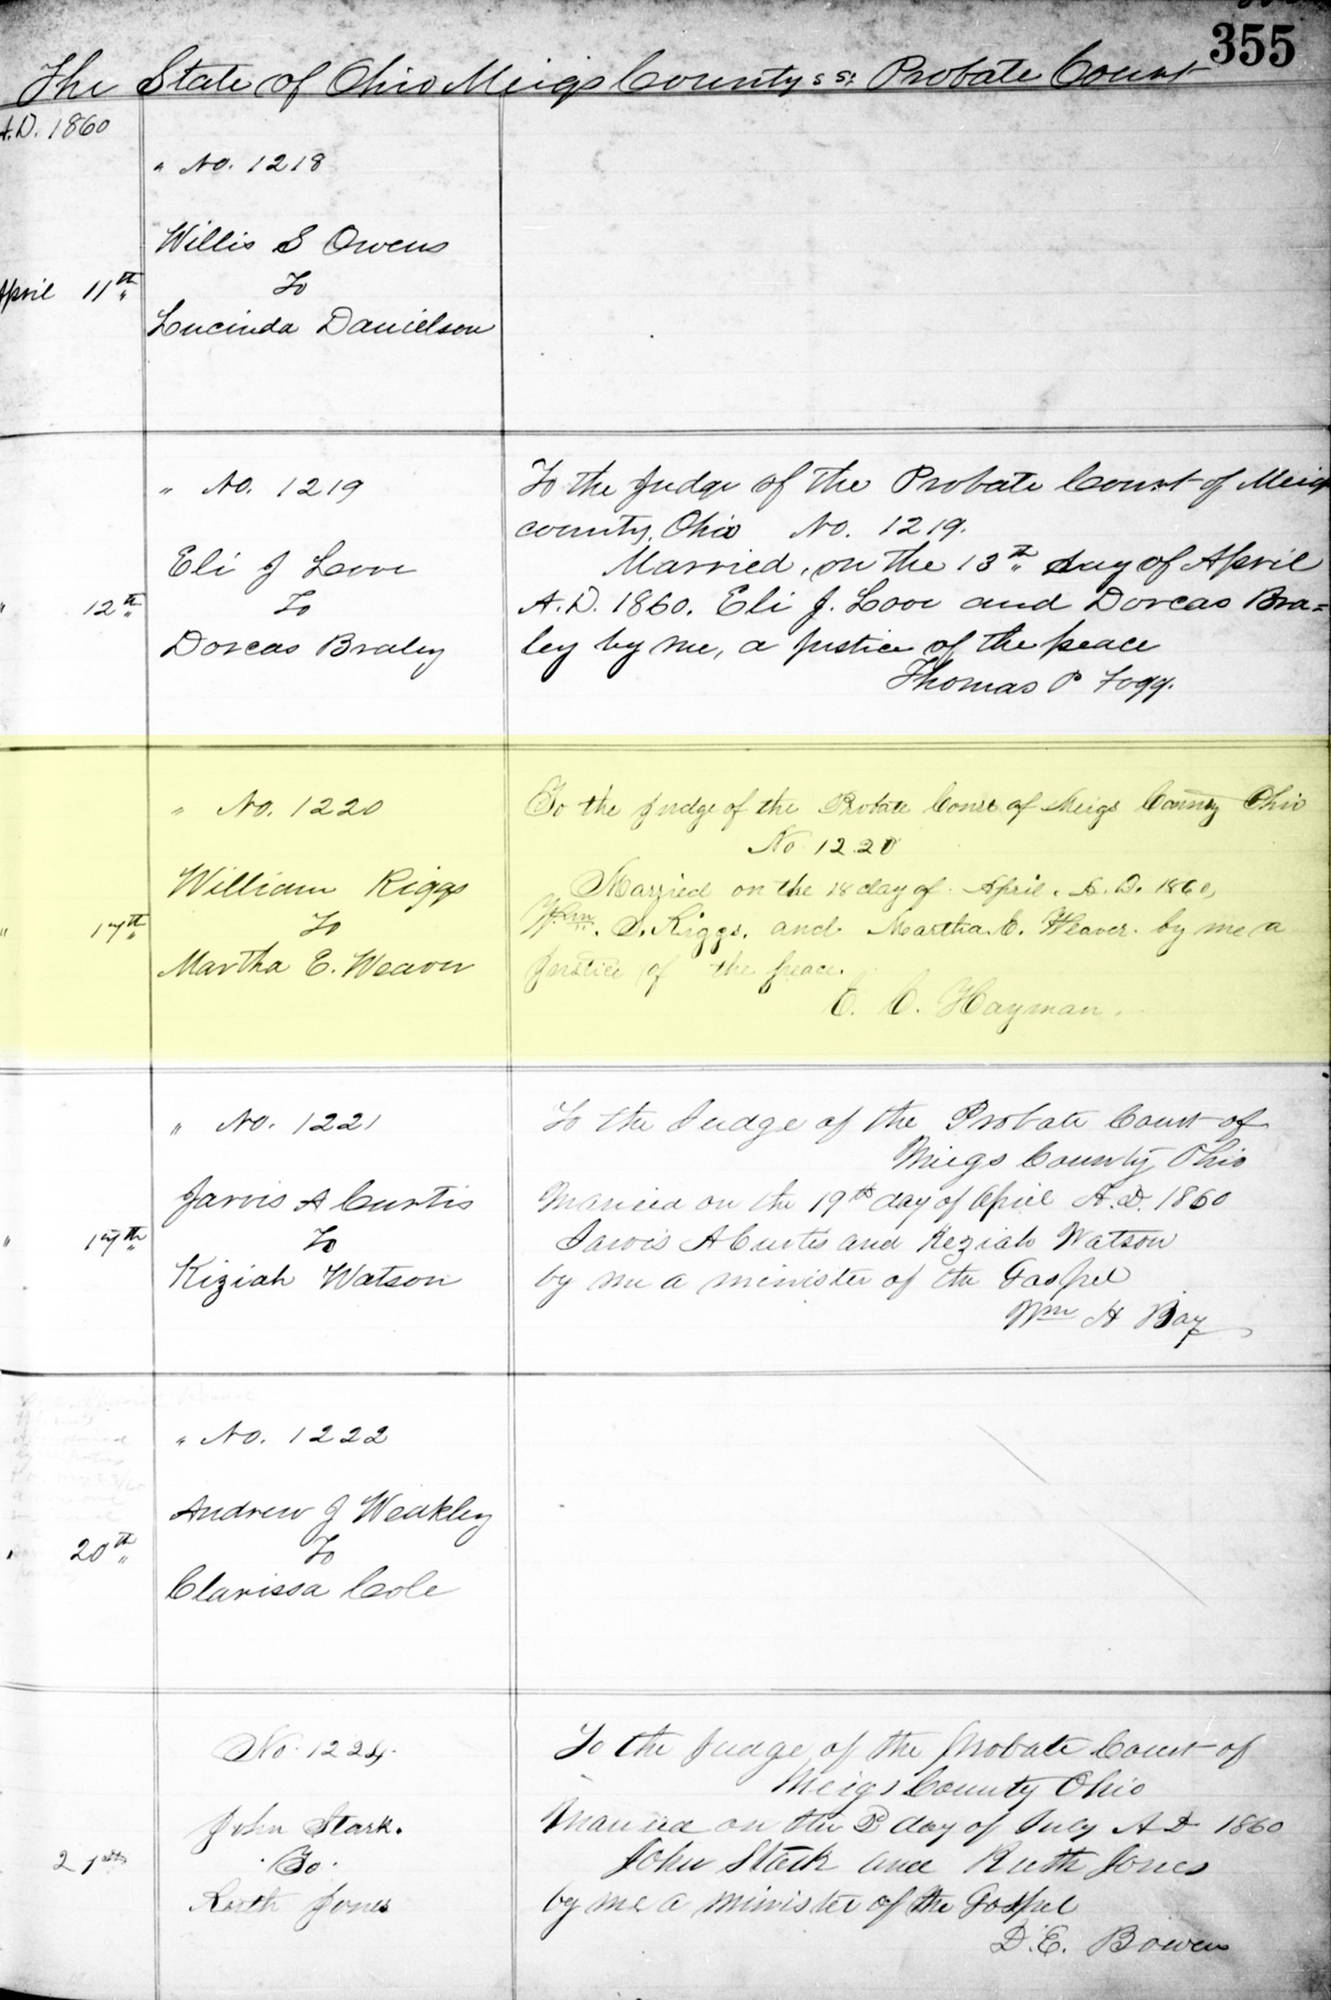 355
The State of Ohio Meigs County ss: Probate Court
A.D. 1860
" No. 1218
Willis S Owens
April 11th To
Lucinda Danielson
" No. 1219
Eli J Love
" 12th To
Dorcas Braley
To the Judge of the Probate Court of Meigs
county, Ohio No. 1219.
Married, on the 13th day of April
A.D. 1860. Eli J. Love and Dorcas Bra=
ley by me, a Justice of the peace
Thomas P Fogg.
" No. 1220
William Riggs
" 17th To
Martha E. Weaver
To the Judge of the Probate Court of Meigs County Ohio
No 1220
Married on the 18 day of April. A. D. 1860,
Wm. S. Riggs. and Martha E. Weaver. by me a
Justice of the peace.
E. C. Hayman.
" No. 1221
Jarvis A Curtis
" 17th To
Kiziah Watson
To the Judge of the Probate Court of
Meigs County Ohio
Married on the 19th day of April A.D. 1860
Jarvis A Curtis and Keziah Watson
by me a minister of the Gospel
Wm H Bay
" No. 1222
Andrew J Weakley
" 20th To
Clarissa Cole
No. 1224.
John Stark.
21st To.
Ruth Jones
To the Judge of the Probate Court of
Meigs County Ohio
Married on the day of July A D 1860
John Stark and Ruth Jones
by me a minister of the Gospel
D. E. Bowen